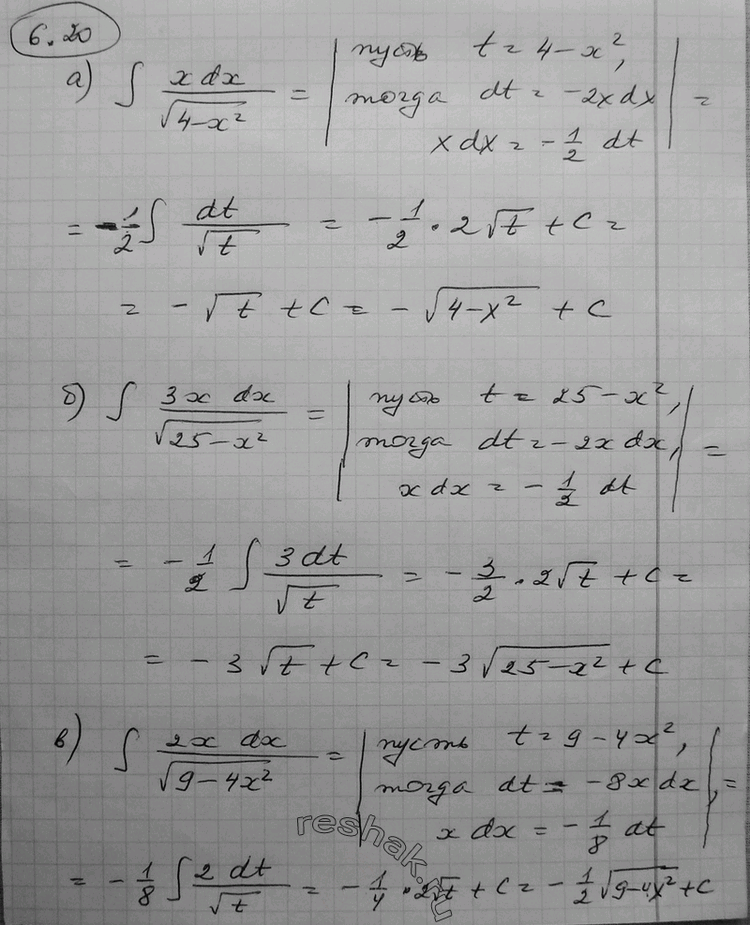 6.20
а) ∫ x dx / √(4-x²) = | пусть t = 4-x², тогда dt = -2x dx x dx = -1/2 dt | =
= -1/2 ∫ dt / √t = -1/2 · 2√t + C =
= -√t + C = -√(4-x²) + C
б) ∫ 3x dx / √(25-x²) = | пусть t = 25-x², тогда dt = -2x dx, x dx = -1/2 dt | =
= -1/2 ∫ 3 dt / √t = -3/2 · 2√t + C =
= -3√t + C = -3√(25-x²) + C
в) ∫ 2x dx / √(9-4x²) = | пусть t = 9-4x², тогда dt = -8x dx, x dx = -1/8 dt | =
= -1/8 ∫ 2 dt / √t = -1/4 · 2√t + C = -1/2 √(9-4x²) + C
reshak.ru